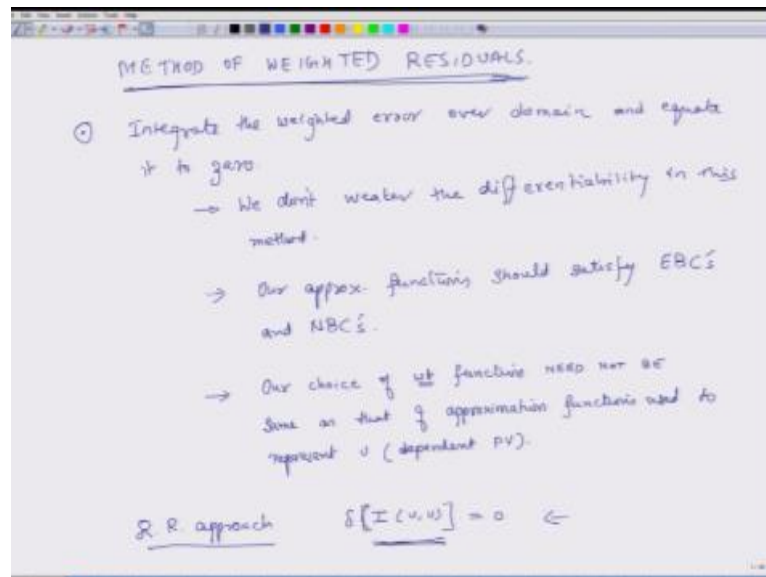 METHOD OF WEIGHTED RESIDUALS.
⊙ Integrate the weighted error over domain and equate
it to zero
→ We don't weaken the differentiability in this
method.
→ Our approx. functions should satisfy EBC's
and NBC's.
→ Our choice of wt function NEED NOT BE
same as that of approximation functions used to
represent u (dependent PV).
R. R. approach δ[I(u,u)] = 0 ←